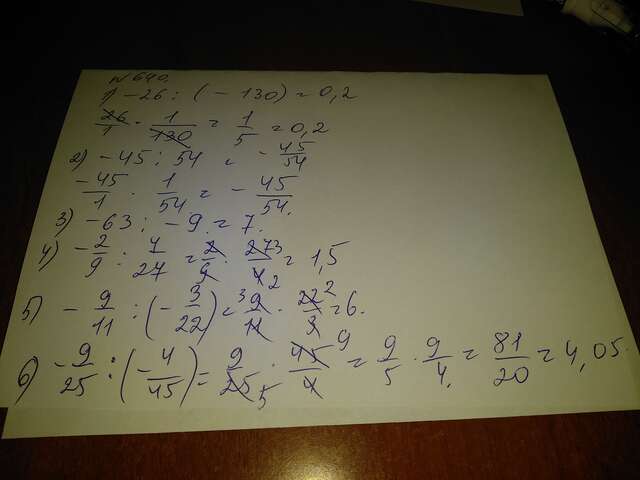 N 640.
1) -26 : (-130) = 0,2
26/1 · 1/130 = 1/5 = 0,2
2) -45 : 54 = -45/54
-45/1 · 1/54 = -45/54.
3) -63 : -9 = 7.
4) -2/9 : 4/27 = 2/9 · 27 3/4 2 = 1,5
5) -9/11 : (-3/22) = 3 9/11 · 22 2/3 = 6.
6) -9/25 : (-4/45) = 9/25 5 · 45 9/4 = 9/5 · 9/4. = 81/20 = 4,05.